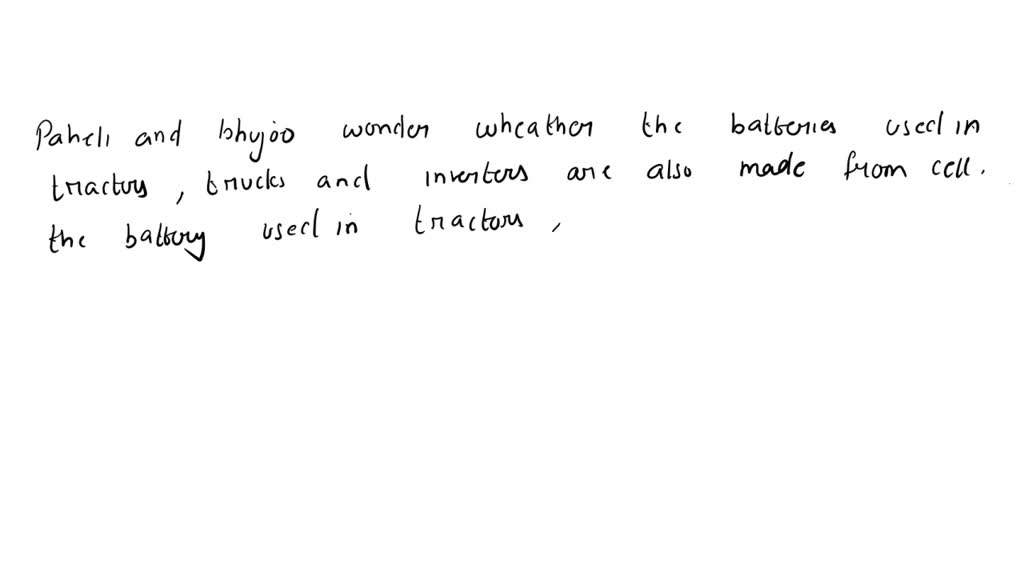 Paheli and bhujoo wonder wheather the batteries used in
tractors, trucks and inverters are also made from cell.
the battery used in tractors,